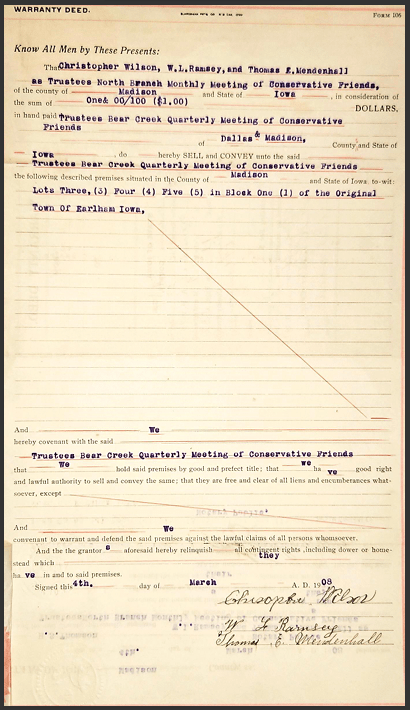 WARRANTY DEED.
FORM 106
Know All Men by These Presents:
That Christopher Wilson, W.L.Ramsey, and Thomas E.Mendenhall
as Trustees North Branch Monthly Meeting of Conservative Friends,
of the county of Madison and State of Iowa, in consideration of
the sum of One& 00/100 ($1.00) DOLLARS,
in hand paid Trustees Bear Creek Quarterly Meeting of Conservative
Friends
of Dallas & Madison, County and State of
Iowa, do hereby SELL and CONVEY unto the said
Trustees Bear Creek Quarterly Meeting of Conservative Friends
the following described premises situated in the County of Madison and State of Iowa. to-wit:
Lots Three, (3) Four (4) Five (5) in Block One (1) of the Original
Town Of Earlham Iowa,
And We
hereby covenant with the said
Trustees Bear Creek Quarterly Meeting of Conservative Friends
that We hold said premises by good and prefect title; that we ha ve good right
and lawful authority to sell and convey the same; that they are free and clear of all liens and encumberances what-
soever, except
And We
convenant to warrant and defend the said premises against the lawful claims of all persons whomsoever.
And the the grantor s aforesaid hereby relinquish all contingent rights ,including dower or home-
stead which they
ha ve in and to said premises.
Signed this 4th. day of March A. D. 1908
Chrisopher Wilson
W L Ramsey
Thomas E. Mendenhall